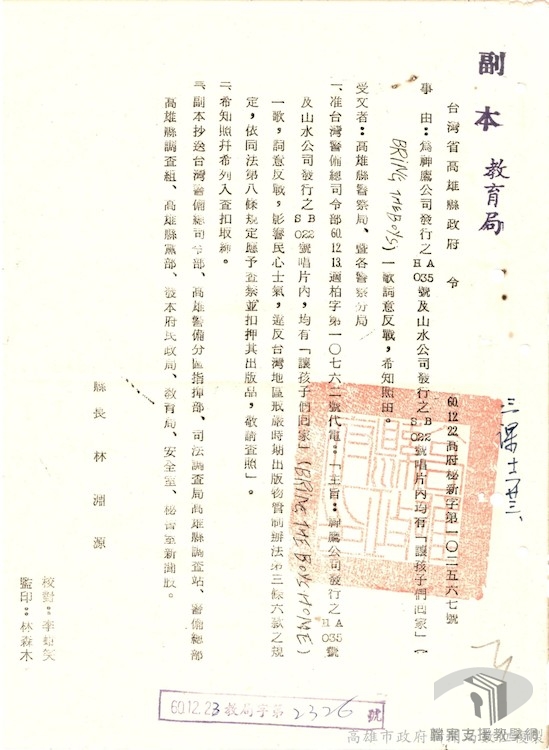 副本 教育局
台灣省高雄縣政府 令
60.12.22.高府秘新字第一〇三五六七號
事 由:為神鷹公司發行之HA035號及山水公司發行之SB022號唱片內均有「讓孩子們回家」(
BRING THE BOYS)一歌詞意反戰,希知照由。
受文者:高雄縣警察局、暨各警察分局
一、准台灣警備總司令部60.12.13.遇柏字第一〇七六二號代電:「主旨:神鷹公司發行之HA035號
及山水公司發行之SB022號唱片內,均有「讓孩子們回家」(BRING THE BOYS HOME)
一歌,詞意反戰,影響民心士氣,違反台灣地區戒嚴時期出版物管制辦法第三條六款之規
定,依同法第八條規定應予查禁並扣押其出版品,敬請查照」。
二、希知照幷希列入查扣取締。
三、副本抄送台灣警備總司令部、高雄警備分區指揮部、司法調查局高雄縣調查站、警備總部
高雄縣調查組、高雄縣黨部、發本府民政局、教育局、安全室、秘書室新聞股。
縣長 林淵源
校對:李
監印:林森木
三課
60.12.23教局字第2326號
檔案支援教學網
高雄市政府